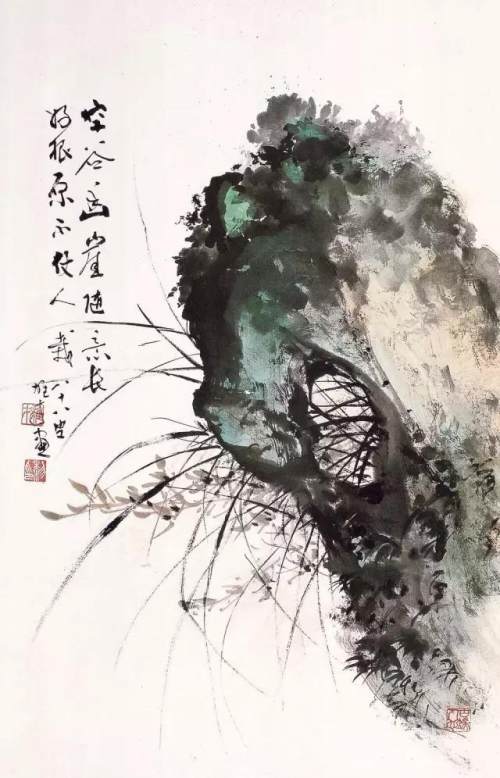 空谷幽崖随意长
好根原不仗人栽 八十八叟
雄才画